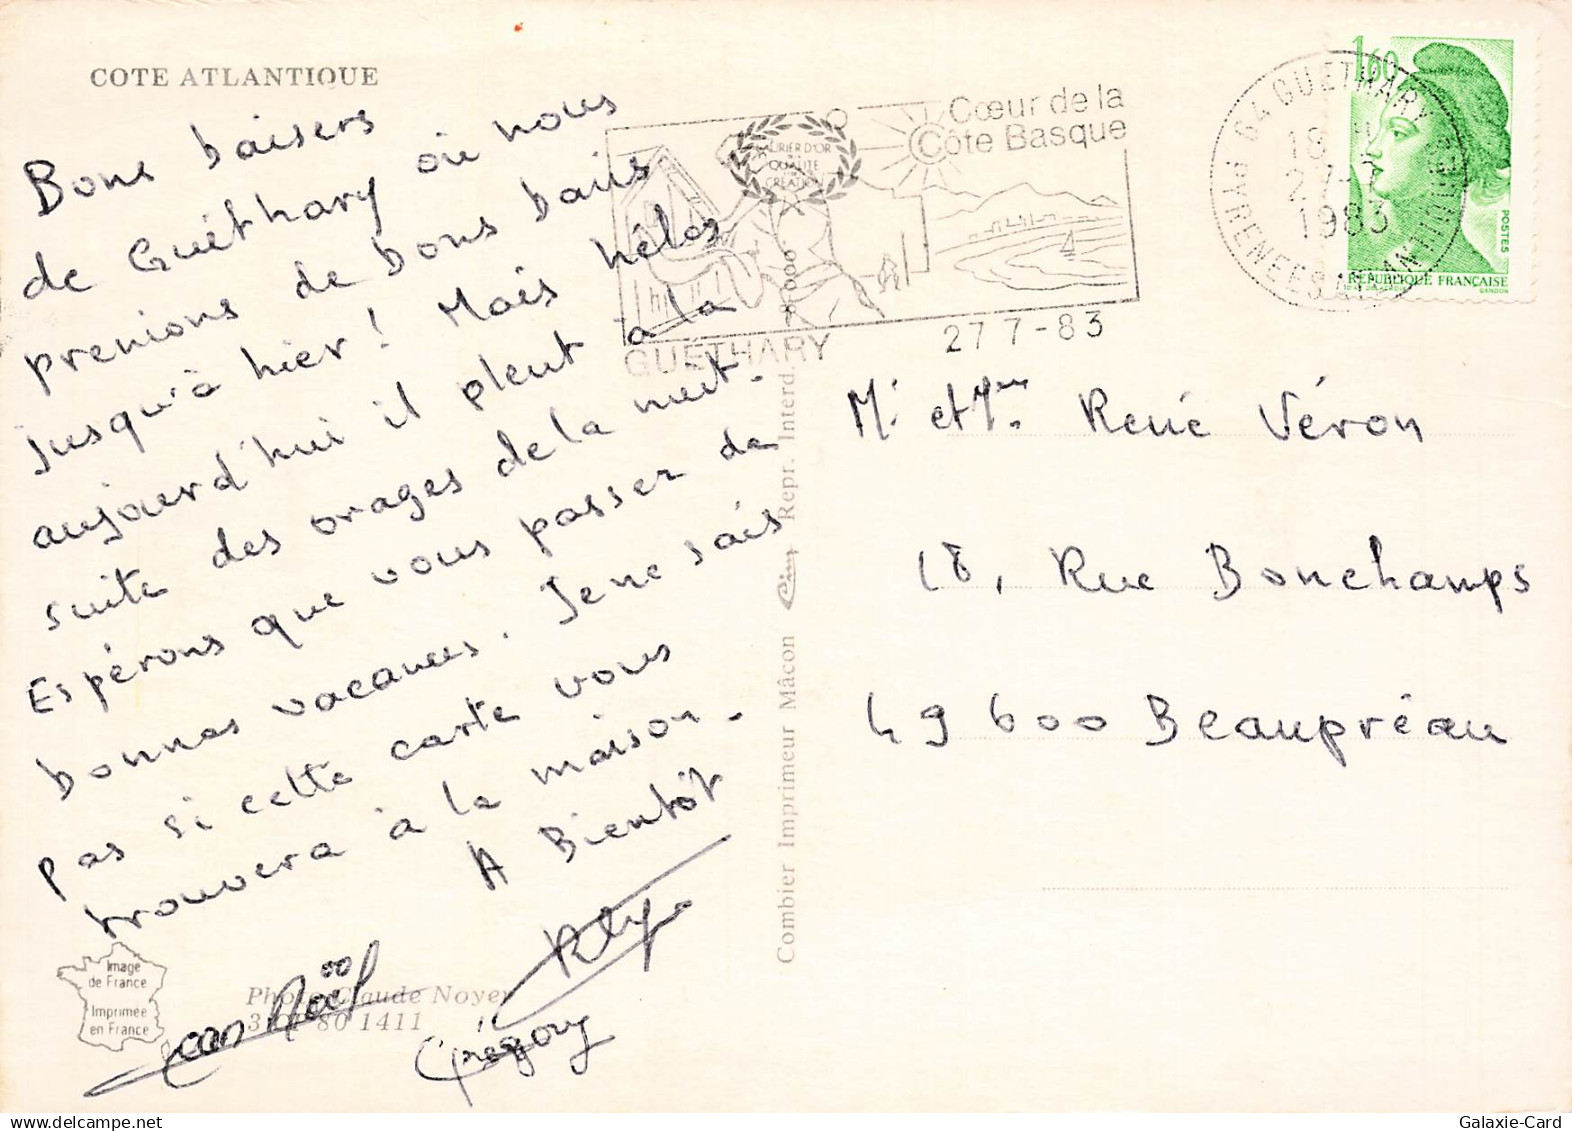 COTE ATLANTIQUE
Bons baisers
de Guéthary où nous
prenions de bons bains
jusqu'à hier ! Mais hélas
aujourd'hui il pleut à la
suite des orages de la nuit.
Espérons que vous passez de
bonnes vacances. Je ne sais
pas si cette carte vous
trouvera à la maison.
A Bientôt
Jean Noël
Grégory
Image
de France
Imprimée
en France
Photo Claude Noyer
3.01 80 1411
Combier Imprimeur Mâcon Cim Repr. Interd.
Cœur de la
Côte Basque
LAURIER D'OR
QUALITE
CREATION
GUÉTHARY
27 7-83
64 GUETHARY
PYRENEES ATLANTIQUES
18 H
27-7
1983
1,60
POSTES
REPUBLIQUE FRANÇAISE
GANDON
Mr et Mme René Véron
18, Rue Bonchamps
49600 Beaupréau
Galaxie-Card